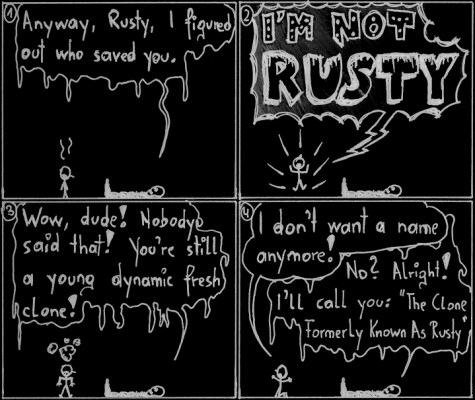 1
Anyway, Rusty, I figured
out who saved you.
2
I'M NOT
RUSTY
3
Wow, dude! Nobody
said that! You're still
a young dynamic fresh
clone!
4
I don't want a name
anymore!
No? Alright!
I'll call you: "The Clone
Formerly Known As Rusty"